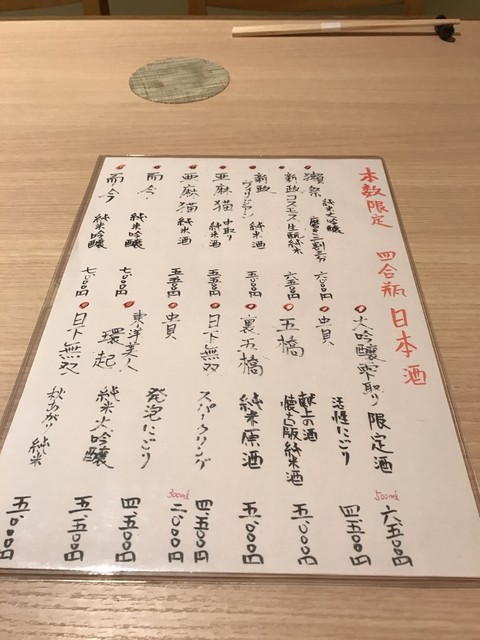 本数限定 四合瓶 日本酒
獺祭 純米大吟醸 磨き二割三分 六、〇〇〇円
新政 コスモス 生酛純米 六、五〇〇円
新政 ヴィリジアン 純米酒 五、〇〇〇円
亜麻猫 中取り 純米酒 五、五〇〇円
亜麻猫 純米酒 五、五〇〇円
而今 純米吟醸 七、〇〇〇円
而今 純米吟醸 七、〇〇〇円
大吟醸雫取り 限定酒 500ml 六、五〇〇円
貝 活性にごり 四、五〇〇円
五橋 献上の酒 懐古版純米酒 五、〇〇〇円
裏五橋 純米原酒 五、〇〇〇円
日下無双 スパークリング 四、五〇〇円
貝 発泡にごり 300ml 二、〇〇〇円
東洋美人 環起 純米大吟醸 四、五〇〇円
日下無双 秋あがり 純米 五、五〇〇円
五、〇〇〇円